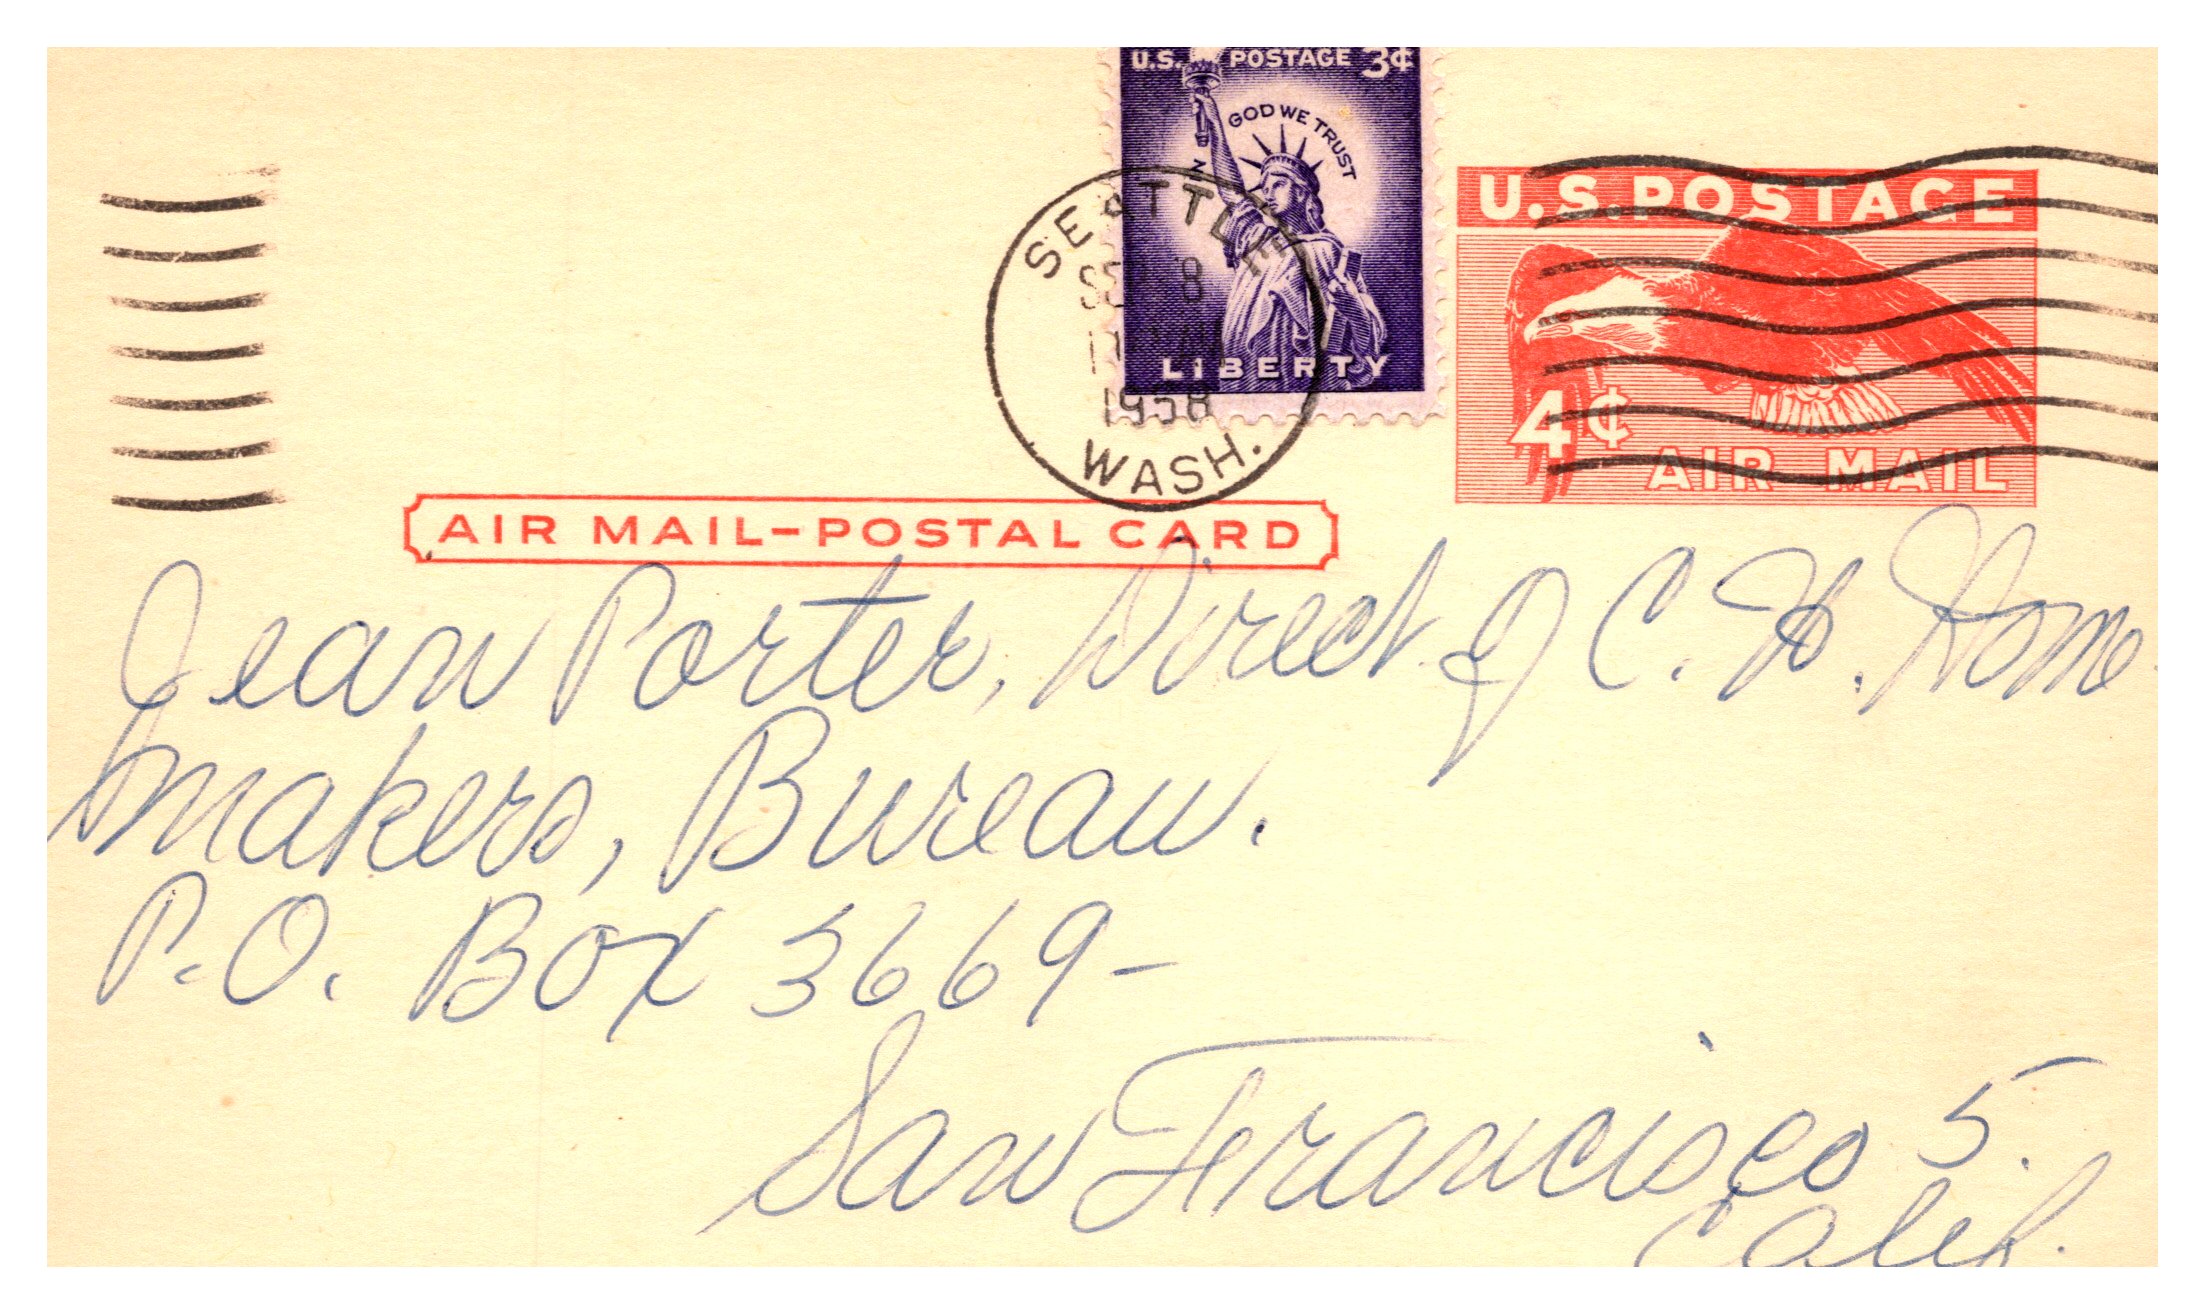 U.S. POSTAGE 3¢
IN GOD WE TRUST
LIBERTY
SEATTLE
SEP 8
1958
WASH.
U.S. POSTAGE
4¢
AIR MAIL
AIR MAIL-POSTAL CARD
Jean Porter, Direct of C. H. Home
makers, Bureau.
P.O. Box 3669-
San Francisco 5.
Calif.